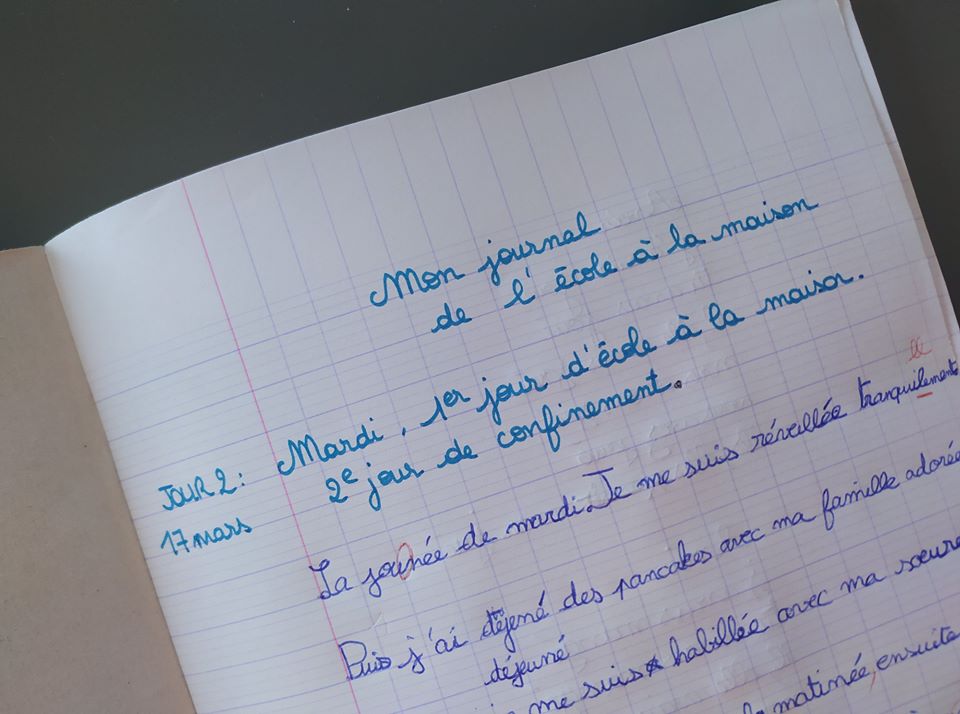 Mon journal
de l'école à la maison
Mardi, 1er jour d'école à la maison.
JOUR 2:
2e jour de confinement.
17 mars
ll
La jounée de mardi. Je me suis réveillée tranquilement
Puis j'ai déjené des pancakes avec ma famille adorée
déjeuné
me suis habillée avec ma sœure
la matinée, ensuite